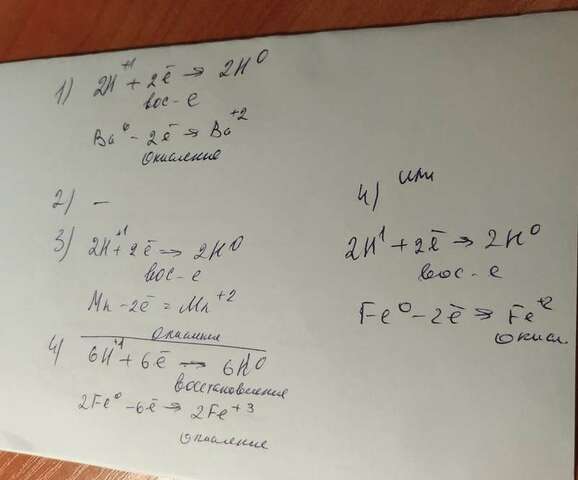 1) 2H⁺¹ + 2ē → 2H⁰
вос-е
Ba⁰ - 2ē → Ba⁺²
Окисление
2) —
3) 2H⁺¹ + 2ē → 2H⁰
вос-е
Mn - 2ē = Mn⁺²
Окисление
4) 6H⁺¹ + 6ē → 6H⁰
восстановление
2Fe⁰ - 6ē → 2Fe⁺³
Окисление
4) или
2H¹ + 2ē → 2H⁰
вос-е
Fe⁰ - 2ē → Fe⁺²
Окисл.